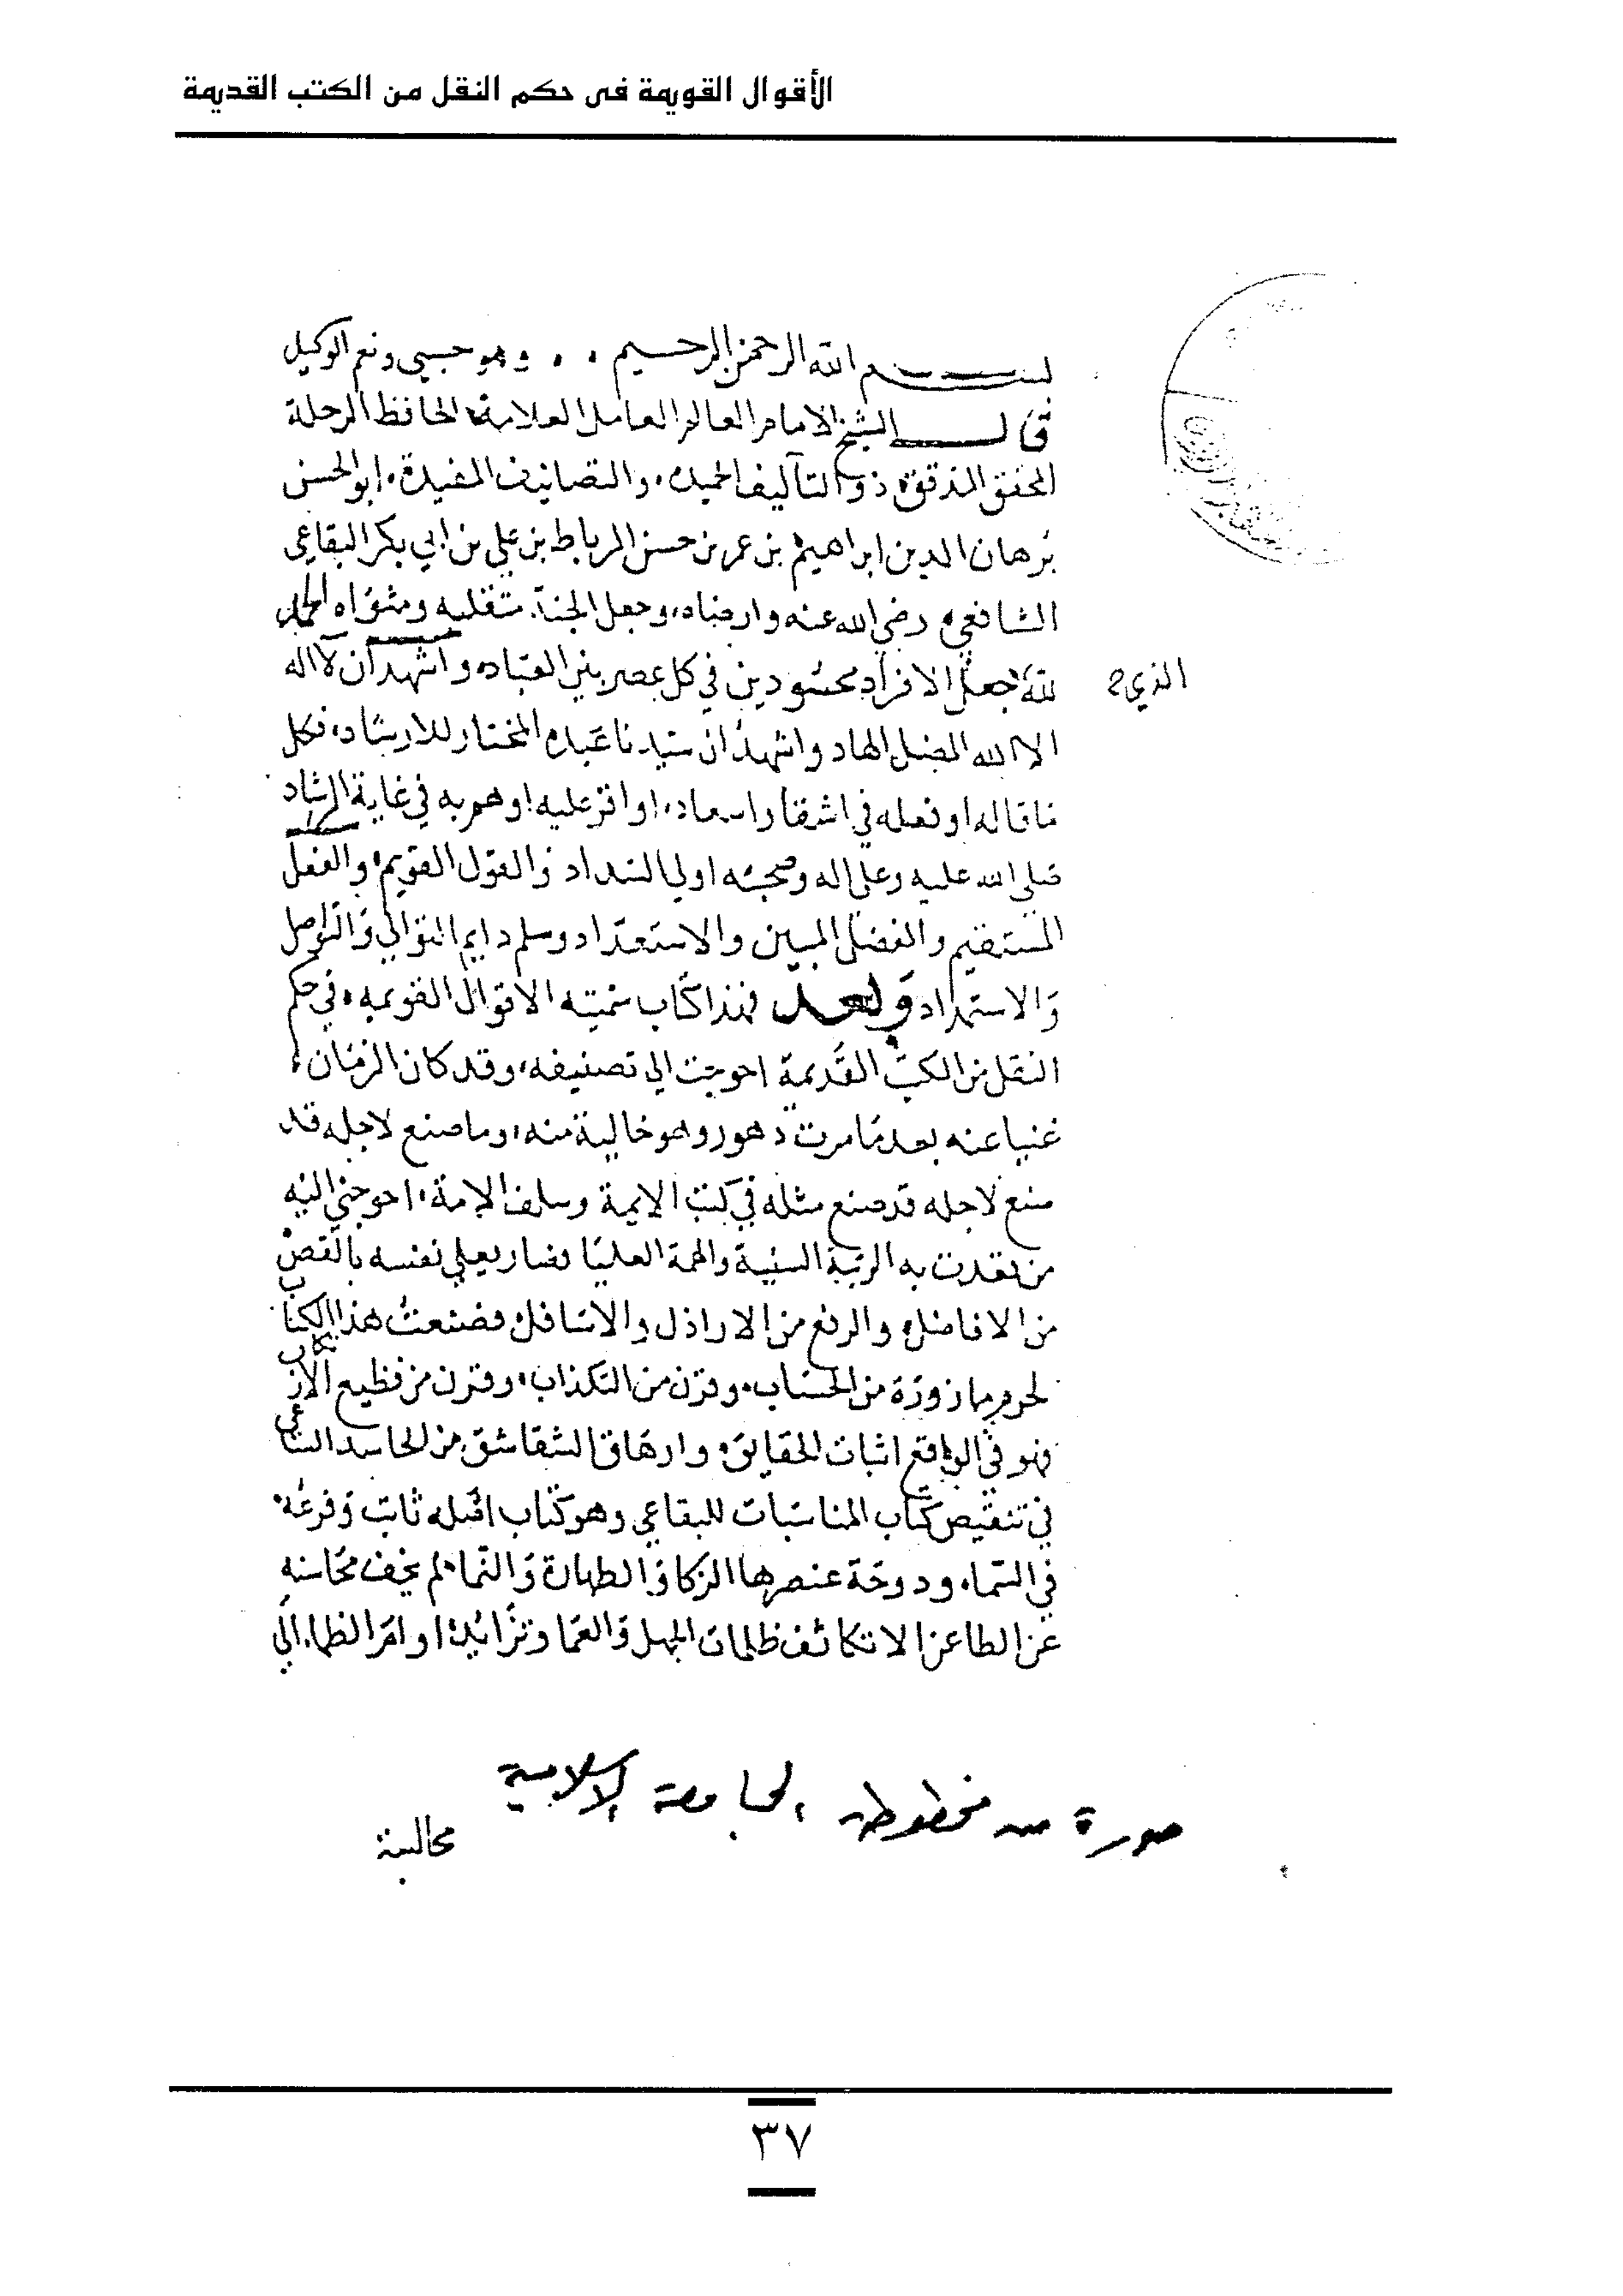 الأقوال القويمة فى حكم النقل من الكتب القديمة
بسم الله الرحمن الرحيم . . وهو حسبي ونعم الوكيل
قال الشيخ الامام العالم العامل العلامة الحافظ الرحلة
المحقق المدقق ذو التآليف الحميده، والتصانيف المفيدة، ابو الحسن
برهان الدين ابراهيم بن عمر بن حسن الرباط بن علي بن ابي بكر البقاعي
الشافعي رضي الله عنه وارضاه، وجعل الجنة متقلبه ومثواه الحمد
لله جعل الافراد محسودين في كل عصر بين العباد، واشهد ان لا اله
الذي
الا الله المضل الهاد واشهد ان سيدنا عبده المختار للارشاد، فكل
ما قاله او فعله في اشقاء او اسعاد، او اقر عليه او هم به في غاية الرشاد
صلى الله عليه وعلى اله وصحبه اولي السداد والقول القويم، والفعل
المستقيم والفضل المبين والاستعداد وسلم دايم التوالي والتواصل
والاستمداد وبعد فهذا كتاب سميته الاقوال القويمه، في حكم
النقل من الكتب القديمة احوجت الي تصنيفه، وقد كان الزمان
غنيا عنه بعد ما مرت دهور وهو خالية منه، وما صنع لاجله قد
صنع لاجله قد صنع مثله في كتب الايمة وسلف الامة، احوجني اليه
من بعدت به الرتبة السنية والهمة العليا فصار يعلي نفسه بالغض
من الافاضل، والرفع من الاراذل والاسافل فصنعت هذا الكتاب
لحرم ما زوره من الحساب، وقرن من التكذاب، وقرن من فظيع الارتكاب
فهو في الواقع اثبات الحقايق، وارهاق الشقاشق من الحاسد الساعي
في تنقيص كتاب المناسبات للبقاعي وهو كتاب اصله ثابت وفرعه
في السماء، ودوحة عنصرها الزكا والطهارة والنما، لم يخف محاسنه
عن الطاعن الا تكاثف ظلمات الجهل والعما وتزايد اوامر الظما، الي
صورة من مخطوطة الجامعة الإسلامية
٣٧